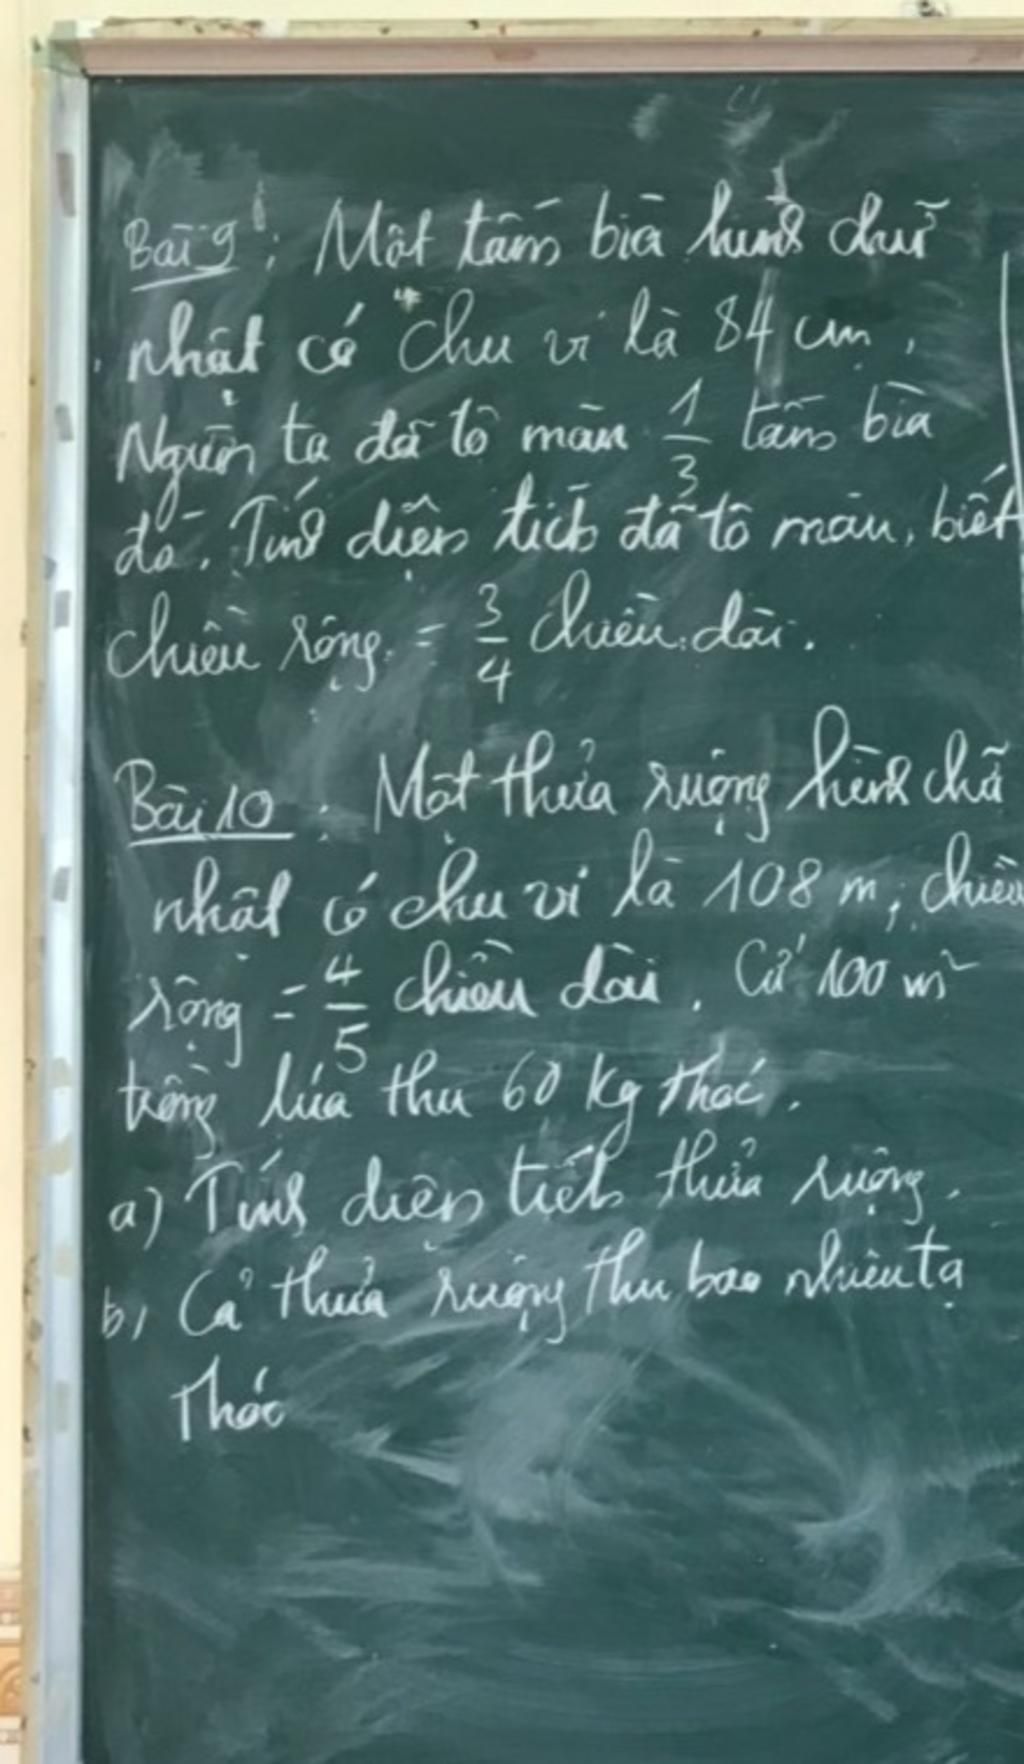 Bài 9: Một tấm bìa hình chữ
nhật có chu vi là 84 cm.
Người ta đã tô màu 1/3 tấm bìa
đó. Tính diện tích đã tô màu, biết
chiều rộng = 3/4 chiều dài.
Bài 10: Một thửa ruộng hình chữ
nhật có chu vi là 108 m; chiều
rộng = 4/5 chiều dài. Cứ 100 m²
trồng lúa thu 60 kg thóc.
a) Tính diện tích thửa ruộng.
b, Cả thửa ruộng thu bao nhiêu tạ
Thóc